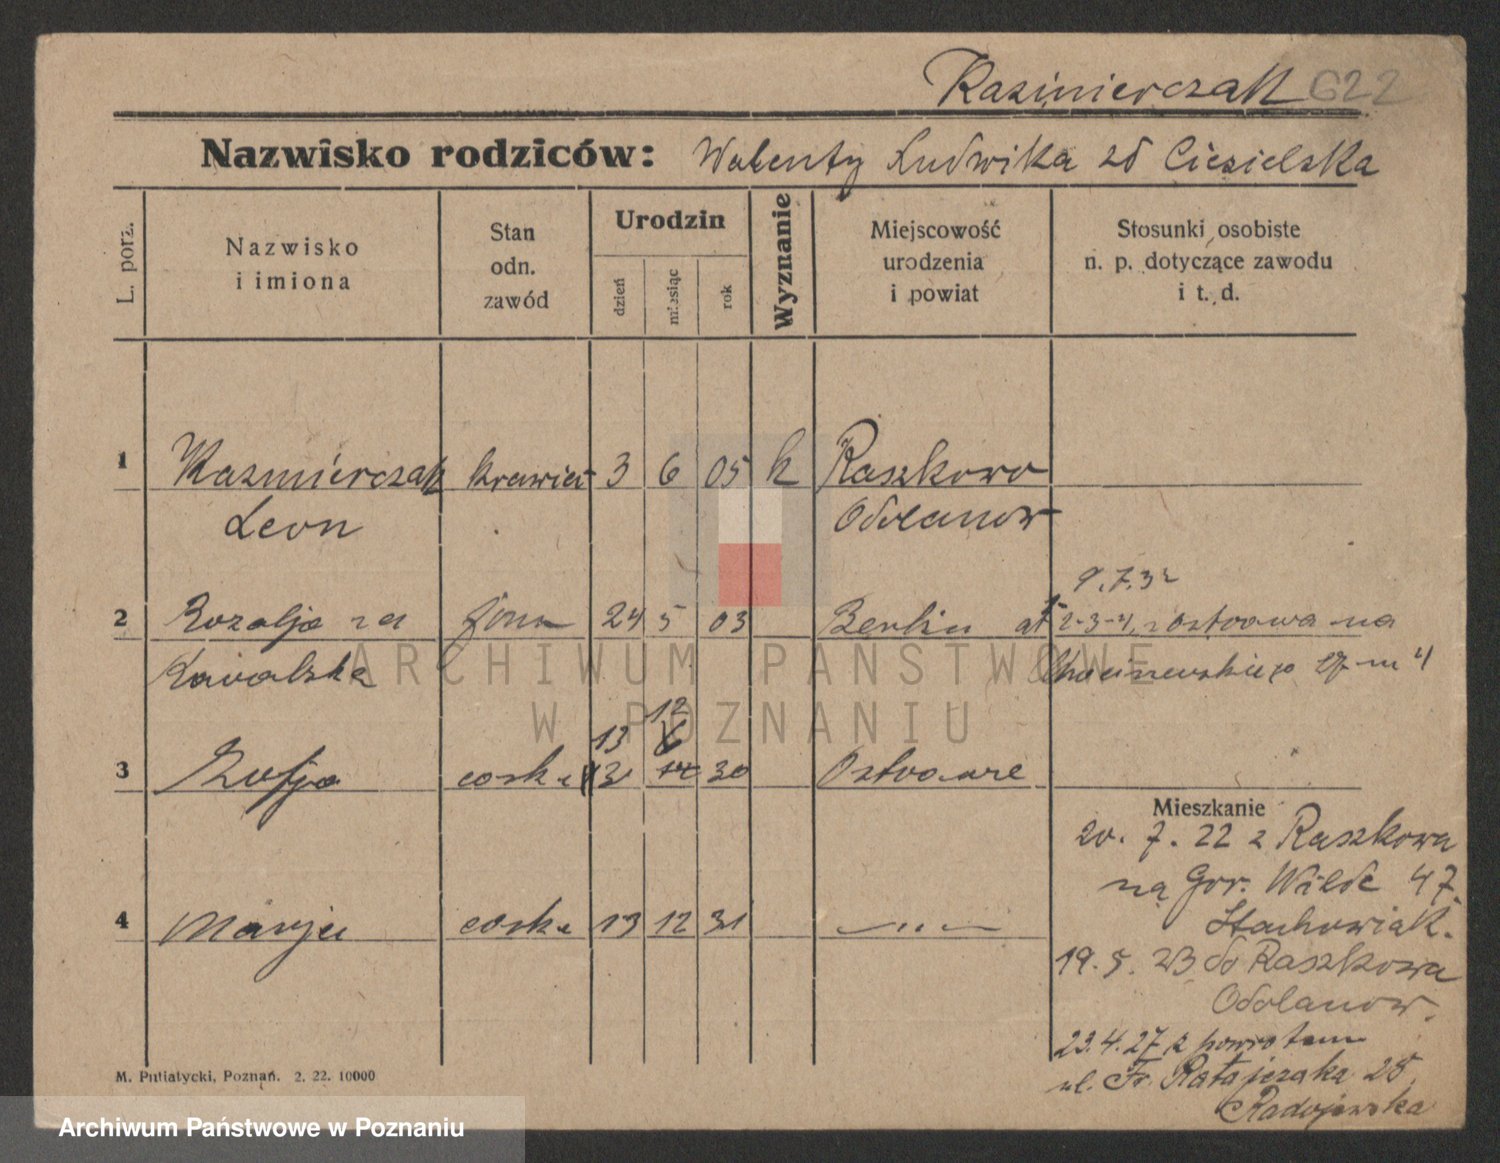 Kazimierczak 622
Nazwisko rodziców: Walenty Ludwika zd Ciesielska
L. porz.
Nazwisko
i imiona
Stan
odn.
zawód
Urodzin
dzień
miesiąc
rok
Wyznanie
Miejscowość
urodzenia
i powiat
Stosunki osobiste
n. p. dotyczące zawodu
i t. d.
1 Kaźmierczak krawiec 3 6 05 k Raszkowo
Leon Odolanow
9.7.32
2 Rozalja za żona 24 5 03 Berlin z Ostrowa na
Kowalska 27 m 4
ARCHIWUM PAŃSTWOWE
W POZNANIU
13 12
3 Zofja corka 30 Ostrowie
Mieszkanie
20. 7. 22 z Raszkowa
na Gor. Wilde 47.
4 Marja corka 13 12 31 — „ —
Stachowiak.
19. 5. 23 do Raszkowa
Odolanow.
23.4.27 z powrotem
ul. Fr. Ratajczaka 25
Radojewska
M. Putiatycki, Poznań. 2. 22. 10000
Archiwum Państwowe w Poznaniu